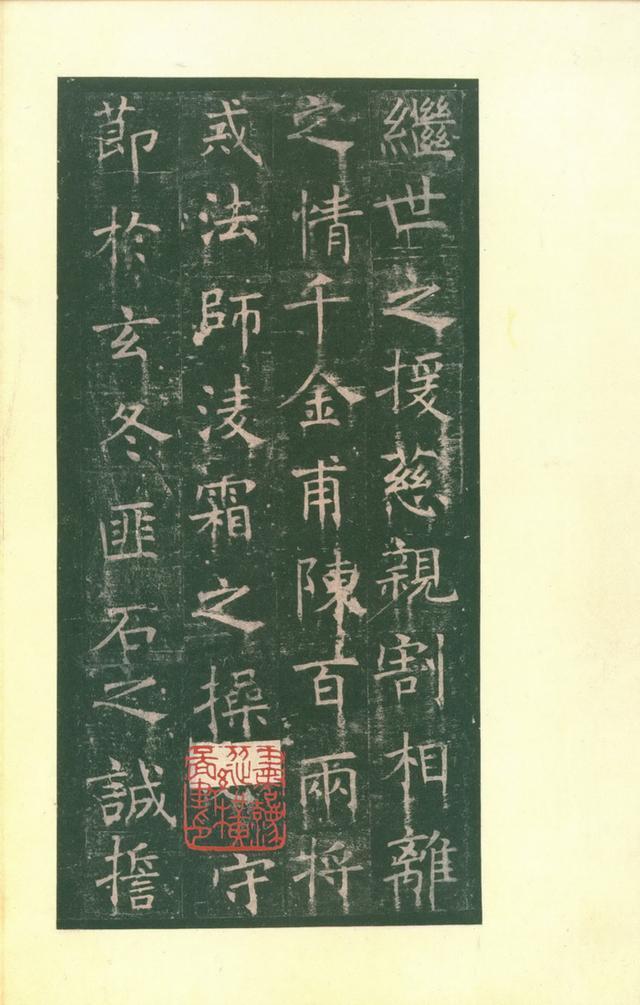 繼世之援慈親割相離
之情千金甫陳百兩将
戒法師淩霜之操守
莭於玄冬匪石之誠㨾